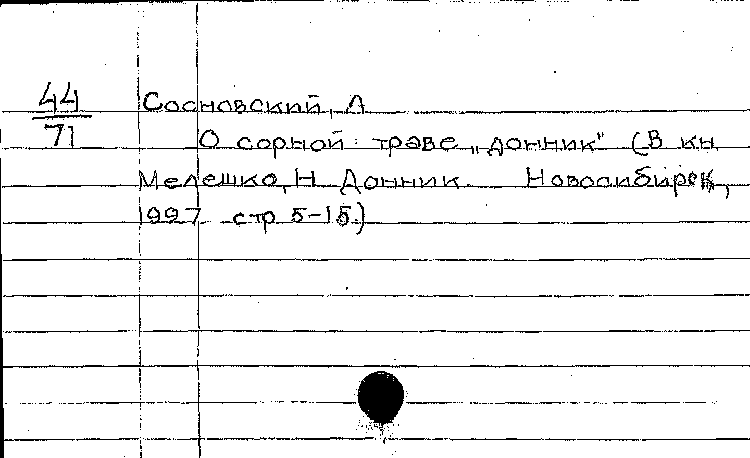 44 Сосновский, А
71 О сорной траве „донник" (В кн.
Мелешко, Н. Донник. Новосибирск,
1997 стр. 5-15.)